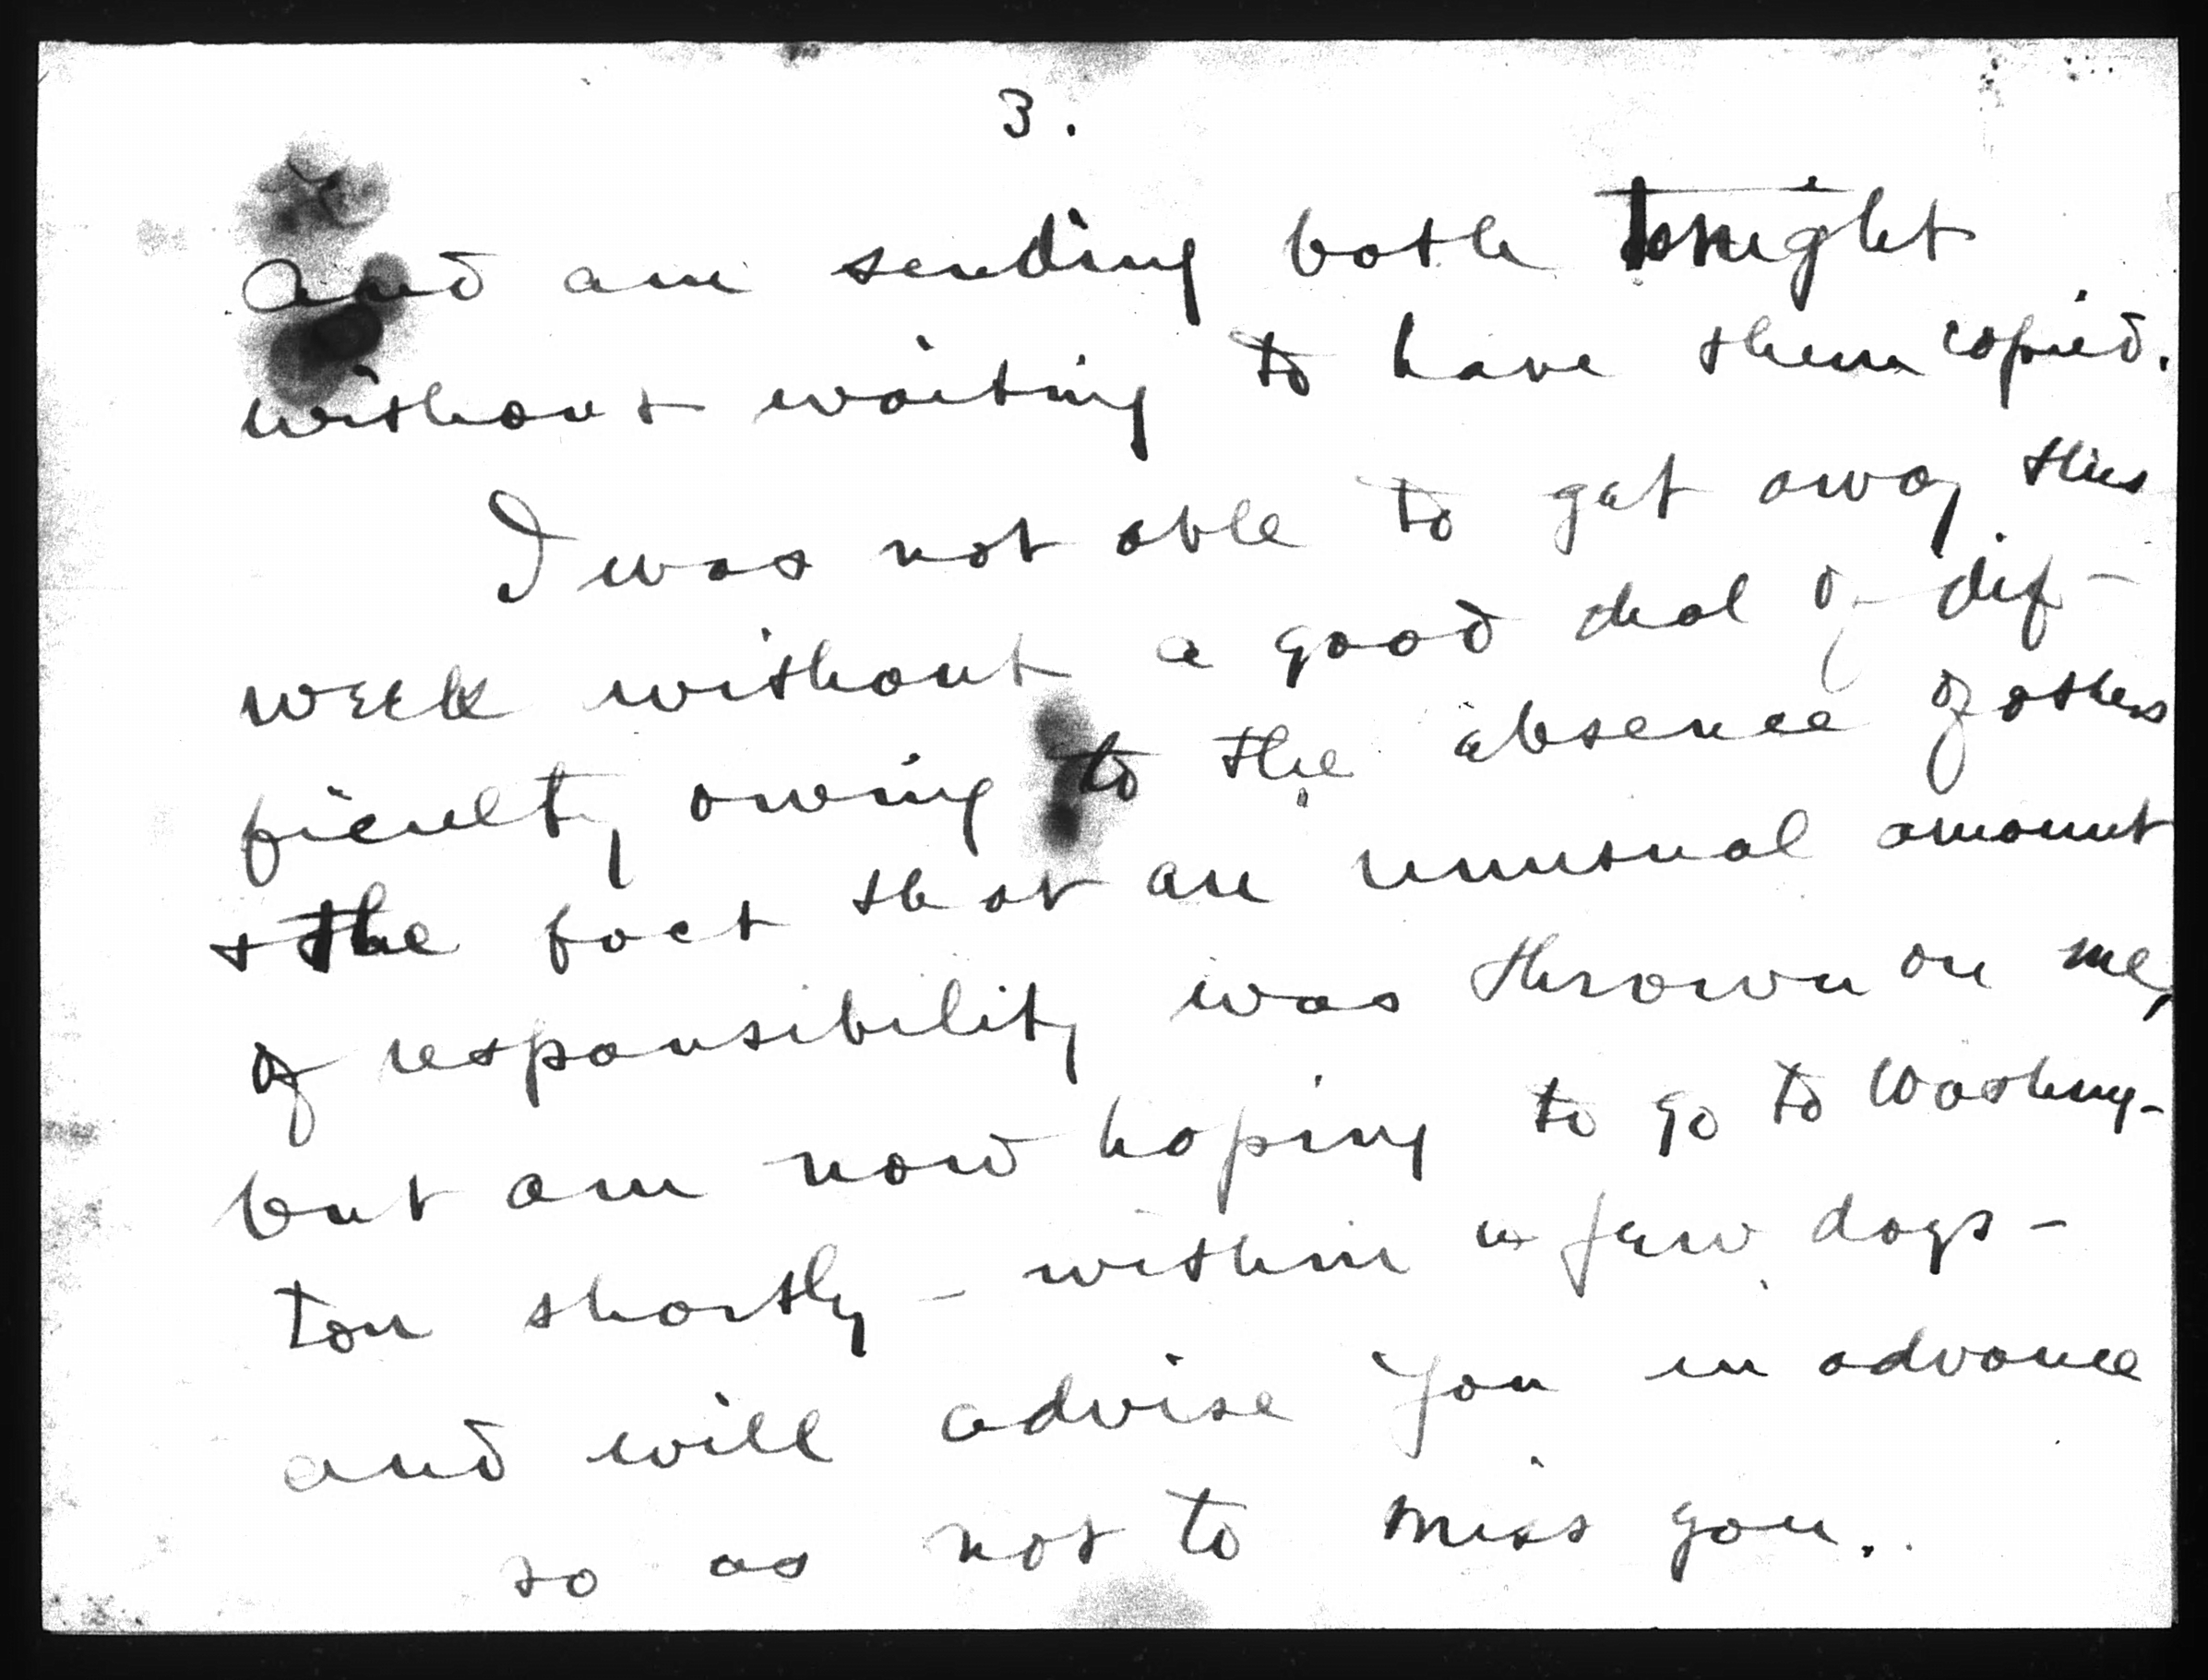 3.
and am sending both tonight
without waiting to have them copied.
I was not able to get away this
week without a good deal of dif-
ficulty owing to the absence of others
+ the fact that an unusual amount
of responsibility was thrown on me,
but am now hoping to go to Washing-
ton shortly - within a few days -
and will advise you in advance
so as not to miss you.